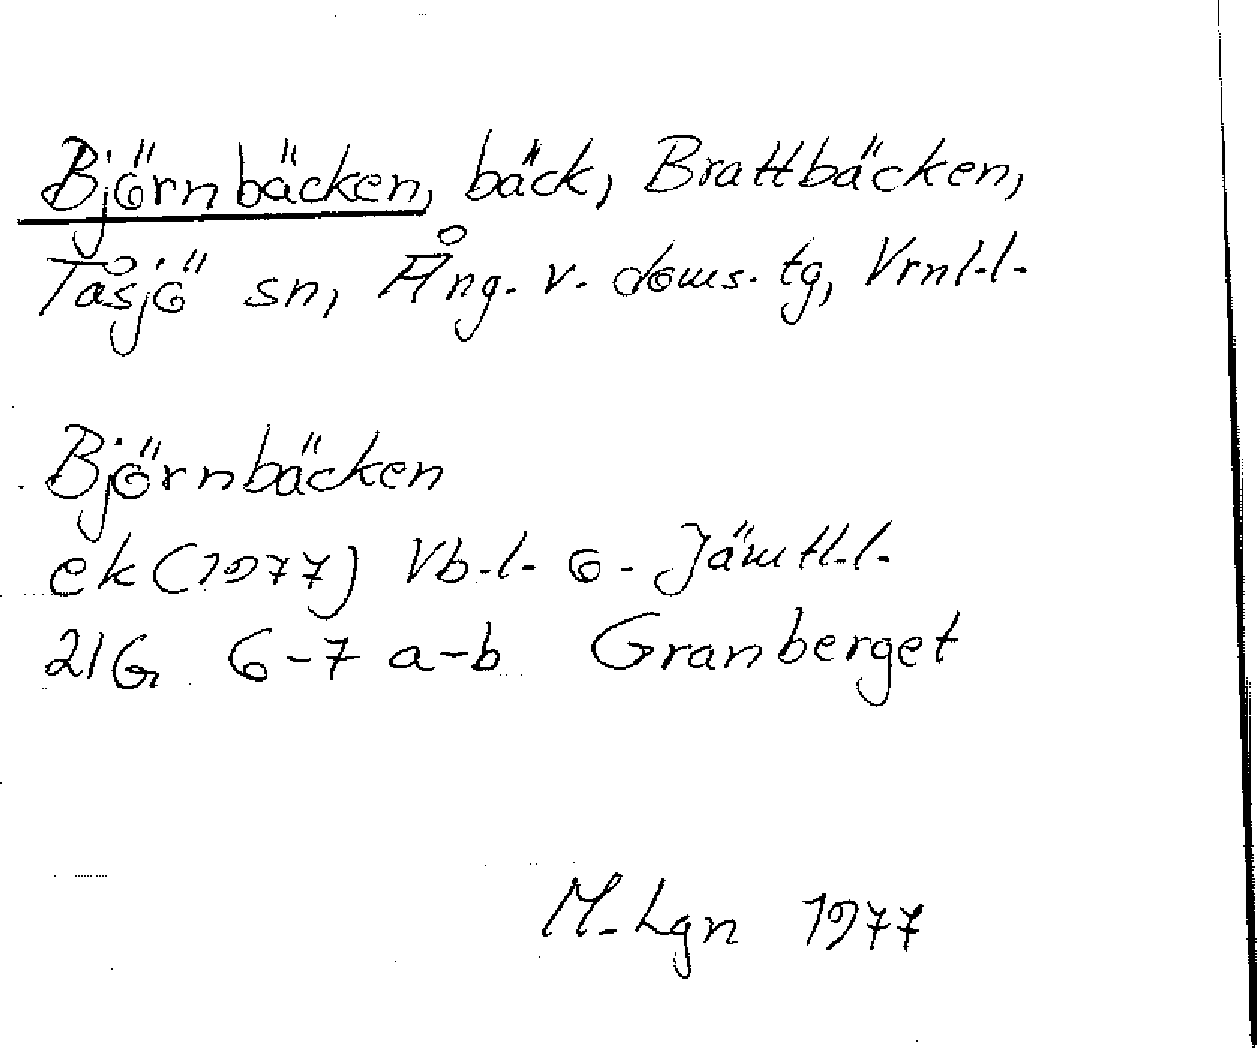 Björnbäcken, bäck, Brattbäcken,
Tåsjö sn, Ång. v. doms. tg, Vrnl.l.
Björnbäcken
ek (1977) Vb.l. o. Jämtl.l.
21G 6-7 a-b Granberget
M. Lgn 1977